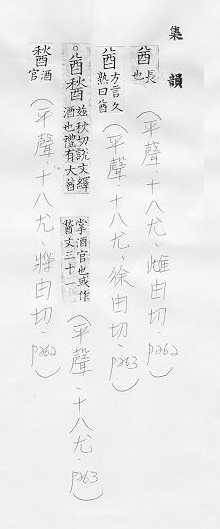 集韻
酋 長也 (平聲.十八尤.雌由切.p262)
酋 方言久熟曰酋 (平聲.十八尤.徐由切.p263)
酋 秋切說文繹酒也禮有大酋掌酒官也或作 文三十一 (平聲.十八尤.p263)
酒官 (平聲.十八尤.將由切.p262)